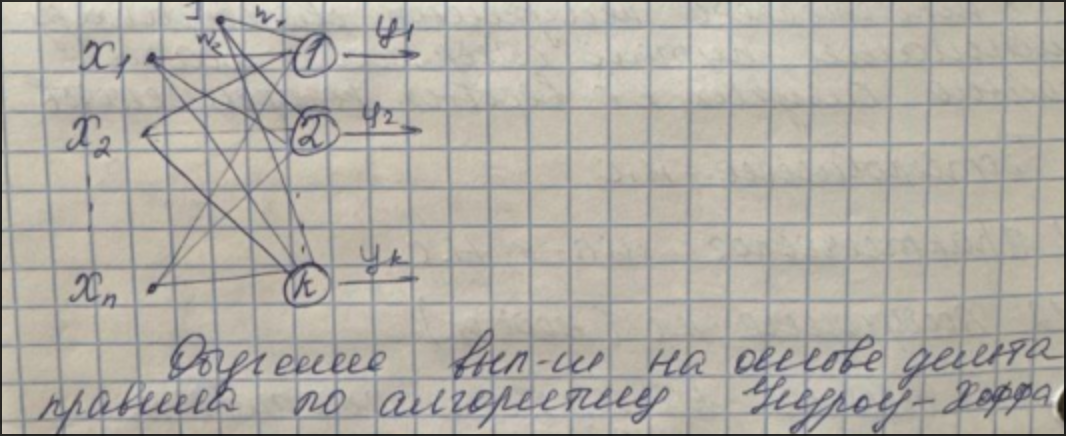 1 w₁
w₂
x₁ 1 y₁
x₂ 2 y₂
xₙ k yₖ
Обучение вып-ся на основе дельта
правила по алгоритму Уидроу-Хоффа